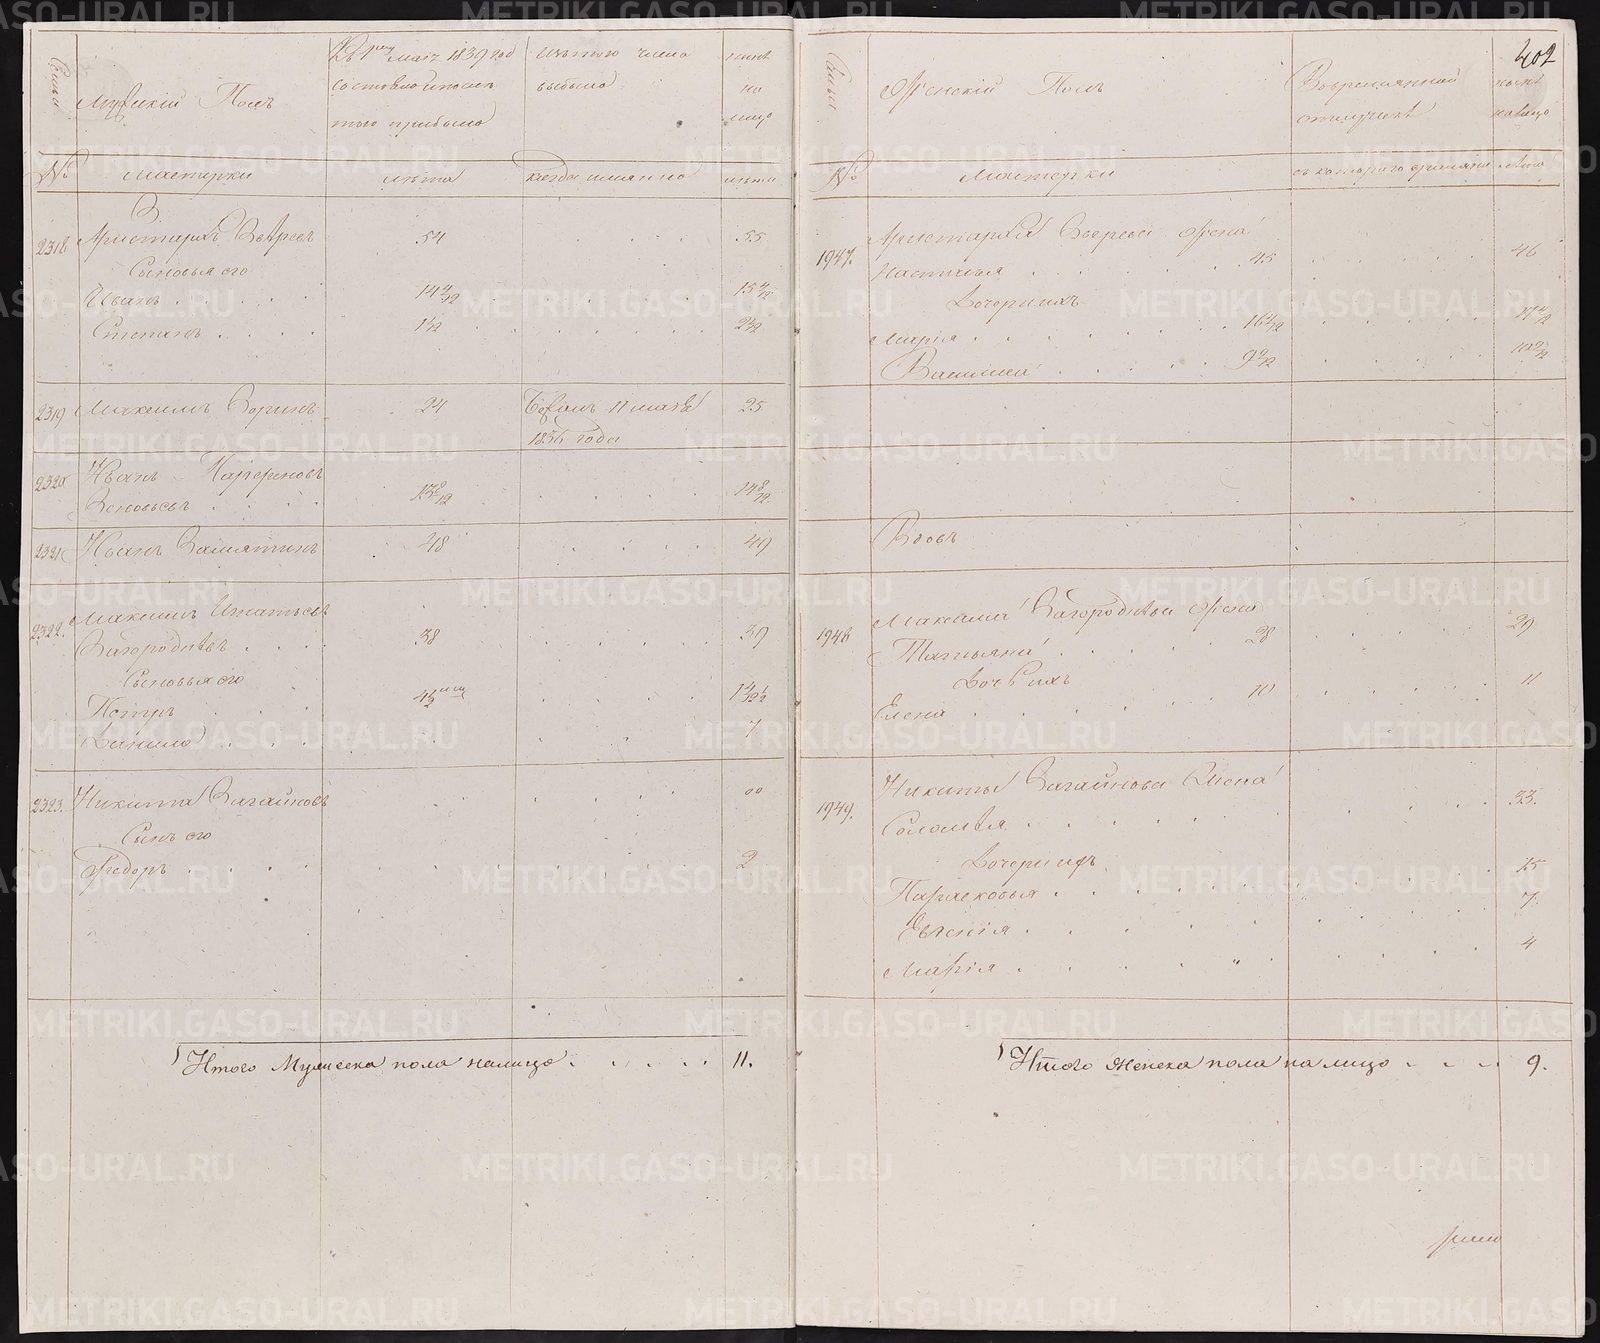 402
Семьи
Мужскій Полъ
Въ 1е Мая 1839 год
состояло и после
того прибыло
Изъ того числа
выбыло
ныне
на
лицо
№
Мастерки
лѣта
когда имянно
лѣта
2318
Аристархъ Звѣревъ
54
55
Сыновья его
Иванъ
14 4/12
15 4/12
Степанъ
1 1/2
2 1/2
2319
Максимъ Зоринъ
24
Бежалъ 11 маия
1836 года
25
2320
Иванъ
Зеновьевъ
13 8/12
14 8/12
2321
Иванъ Замятинъ
48
49
2322.
Максимъ Игнатьевъ
Загороднѣвъ
38
39
Сыновья его
Петръ
Данило
7
2323.
Никита Загайновъ
Сынъ его
Федоръ
2
Итого Мужеска пола налицо
11.
Семьи
Женскій Полъ
Вовремянной
отлучкѣ
ныне
налицо
№
Мастерки
съ котораго времяни
лѣта
1947.
Аристарха Зверева жена
Настасья
45
46
Дочери ихъ
Марія
16 4/12
17 4/12
Василиса
9 9/12
10 9/12
Вдовъ
1948
Максима Загороднѣва жена
Татьяна
28
29
Дочь ихъ
Елена
10
11
1949.
Никиты Загайнова Жена
Соломѣя
33.
Дочери ихъ
Парасковья
15
Евгенія
7.
Марія
4
Итого Женска пола на лицо
9.
METRIKI.GASO-URAL.RU